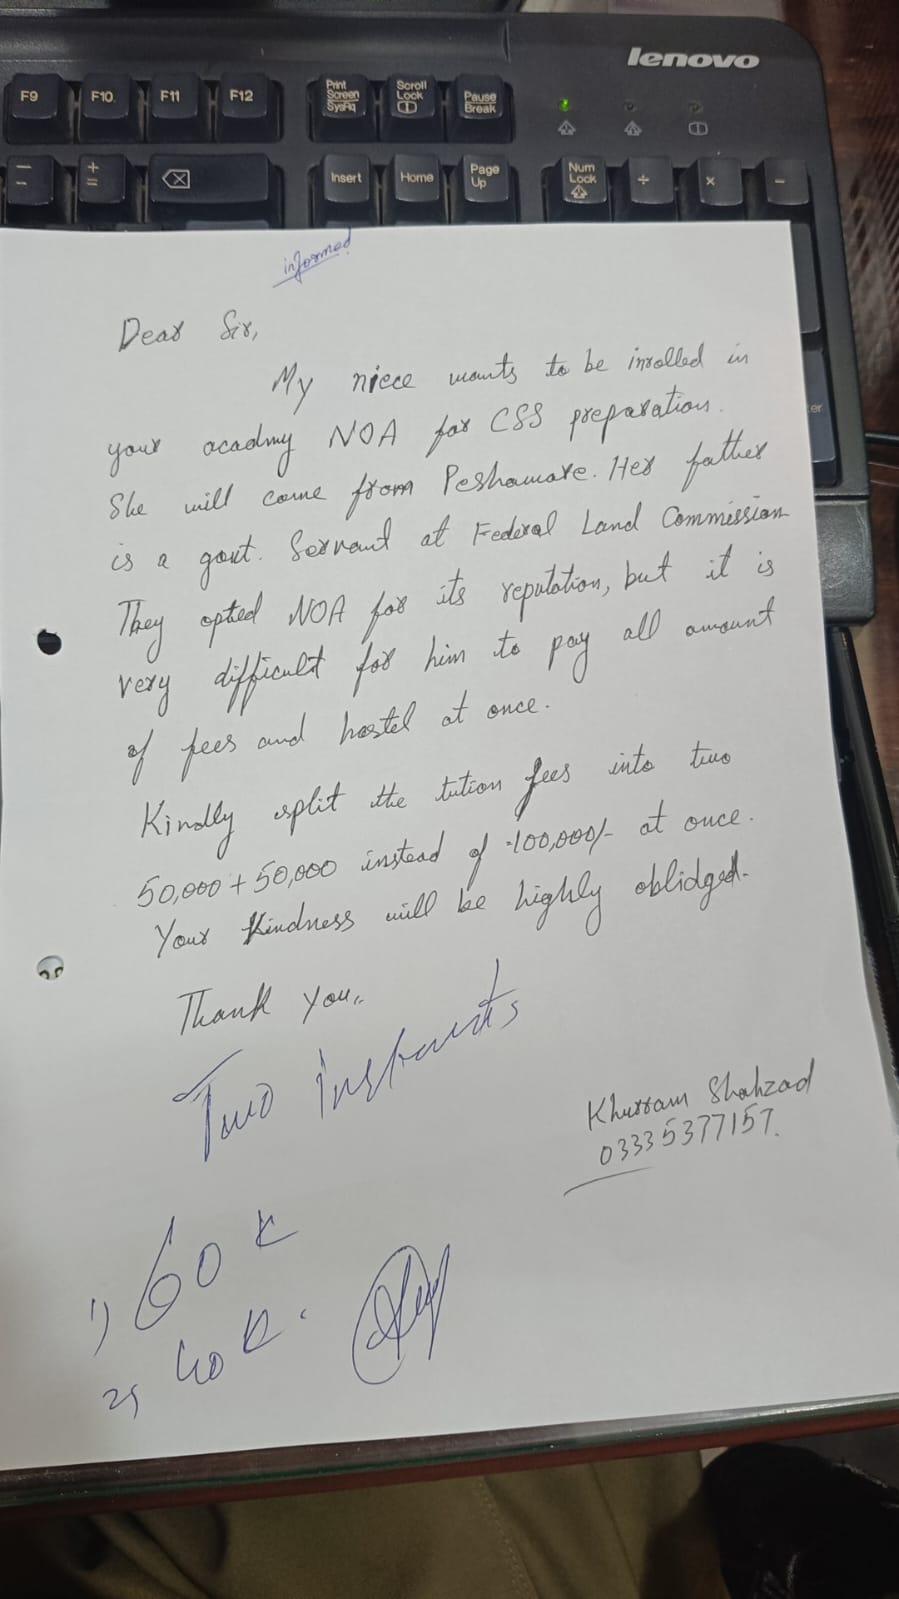 lenovo
F9 F10 F11 F12 Print Screen SysRq Scroll Lock Pause Break
Insert Home Page Up Num Lock ÷ × −
informed
Dear Sir,
My niece wants to be inrolled in
your acadmy NOA for CSS preparation.
She will come from Peshawate. Her father
is a govt. Servant at Federal Land Commission
They opted NOA for its reputation, but it is
very difficult for him to pay all amount
of fees and hostel at once.
Kindly split the tution fees into two
50,000 + 50,000 instead of 100,000/- at once.
Your Kindness will be highly oblidged.
Thank you..
Two
Khurram Shahzad
03335377157.
1) 60 K
2) 40 K.